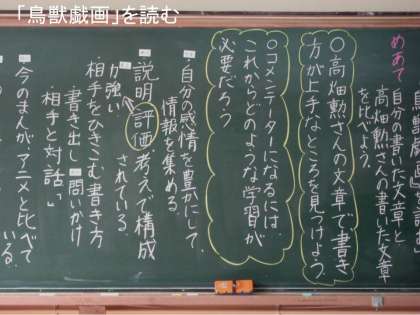 「鳥獣戯画」を読む
めあて
自分の書いた文章と
高畑勲さんの書いた文章
を比べよう。
○高畑勲さんの文章で、書き
方が上手なところを見つけよう。
○コメンテーターになるには
これからどのような学習が
必要だろう
・自分の感情を豊かにして
情報を集める。
・説明、評価、考えで構成
されている。
が強い
・相手をひきこむ書き方
書き出し 問いかけ
「相手と対話」
・今のまんが、アニメと比べて
いる。